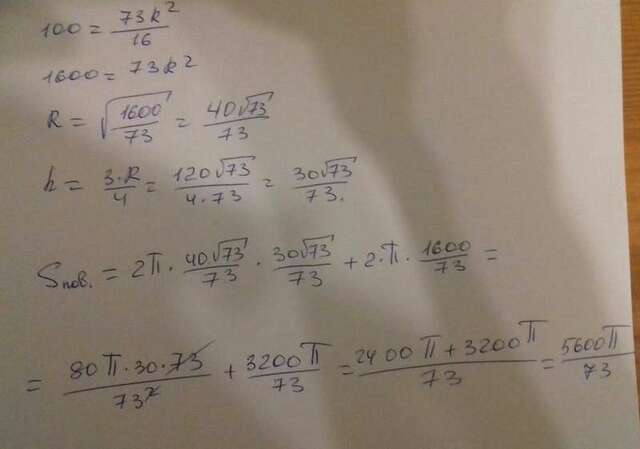 100 = 73R²/16
1600 = 73R²
R = √(1600/73) = 40√73/73
h = 3·R/4 = 120√73/4·73 = 30√73/73.
Sпов. = 2π · 40√73/73 · 30√73/73 + 2·π · 1600/73 =
= 80π·30·73/73² + 3200π/73 = 2400π+3200π/73 = 5600π/73